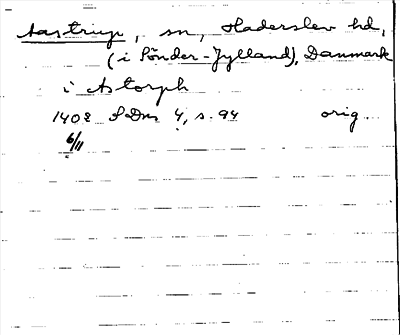 Aastrup, sn, Haderslev hd,
(i Sönder-Jylland), Danmark
i Astorph
1402 SDns 4, s. 94 orig.
6/11